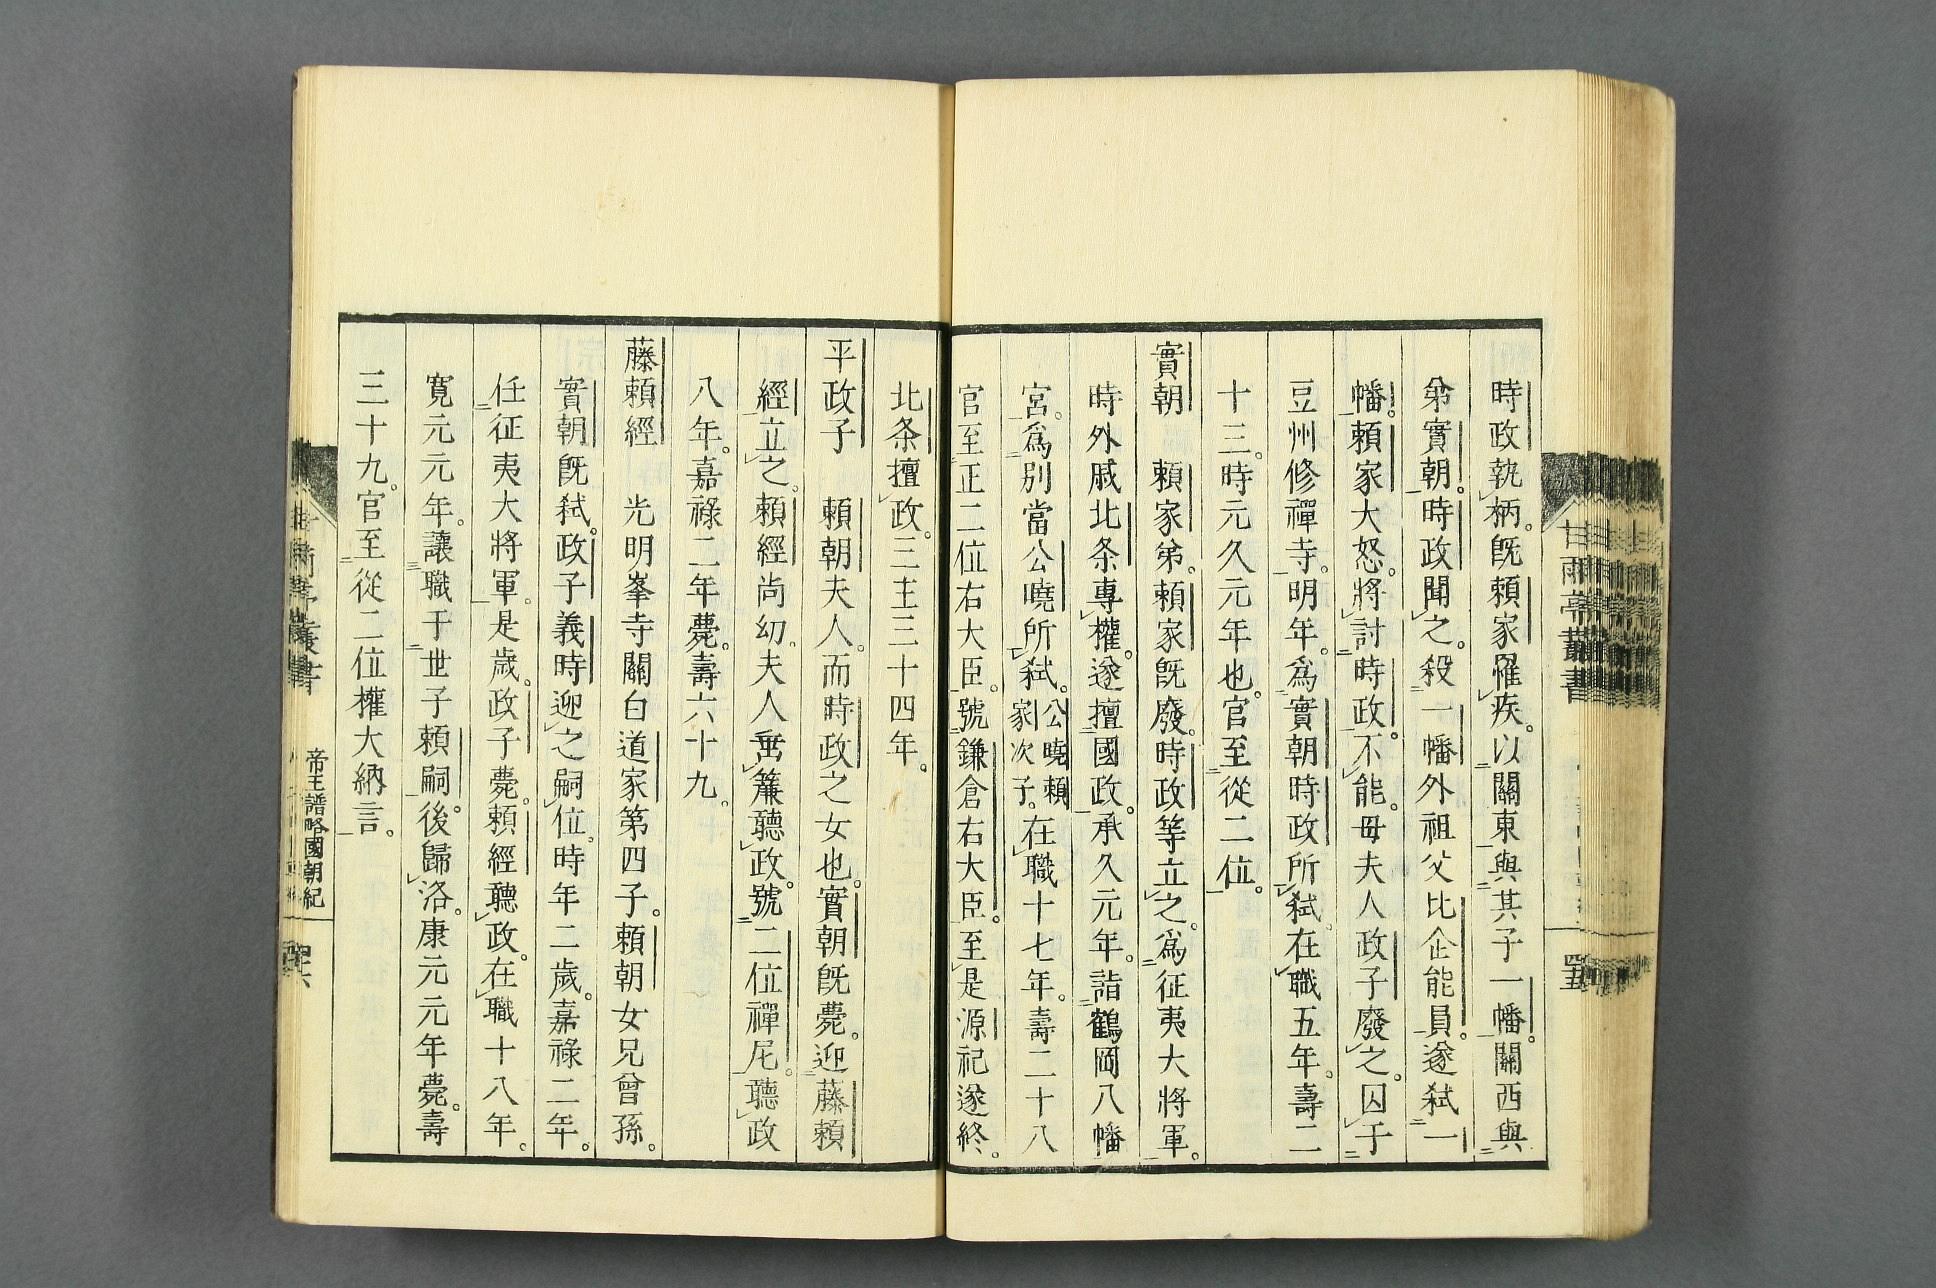 時政執柄。既頼家罹疾。以關東與其子一幡。關西與
弟實朝。時政聞之。殺一幡外祖父比企能員。遂弑一
幡。頼家大怒。將討時政。不能。母夫人政子廢之。囚于
豆州修禪寺。明年。爲實朝時政所弑。在職五年。壽二
十三。時元久元年也。官至從二位。
實朝　頼家弟。頼家既廢。時政等立之。爲征夷大將軍。
時外戚北条專權。遂擅國政。承久元年。詣鶴岡八幡
宮。爲別當公曉所弑。公曉頼家次子。在職十七年。壽二十八
官至正二位右大臣。號鎌倉右大臣。至是源祀遂終。
北条擅政。三主三十四年。
平政子　頼朝夫人。而時政之女也。實朝既薨。迎藤頼
經立之。頼經尚幼。夫人垂簾聽政。號二位禪尼。聽政
八年。嘉祿二年薨。壽六十九。
藤頼經　光明峯寺關白道家第四子。頼朝女兄曾孫。
實朝既弑。政子義時迎之嗣位。時年二歲。嘉祿二年。
任征夷大將軍。是歲。政子薨。頼經聽政。在職十八年。
寛元元年。讓職于世子頼嗣。後歸洛。康元元年薨。壽
三十九。官至從二位權大納言。
甘雨亭叢書
四十五
帝王譜略國朝紀